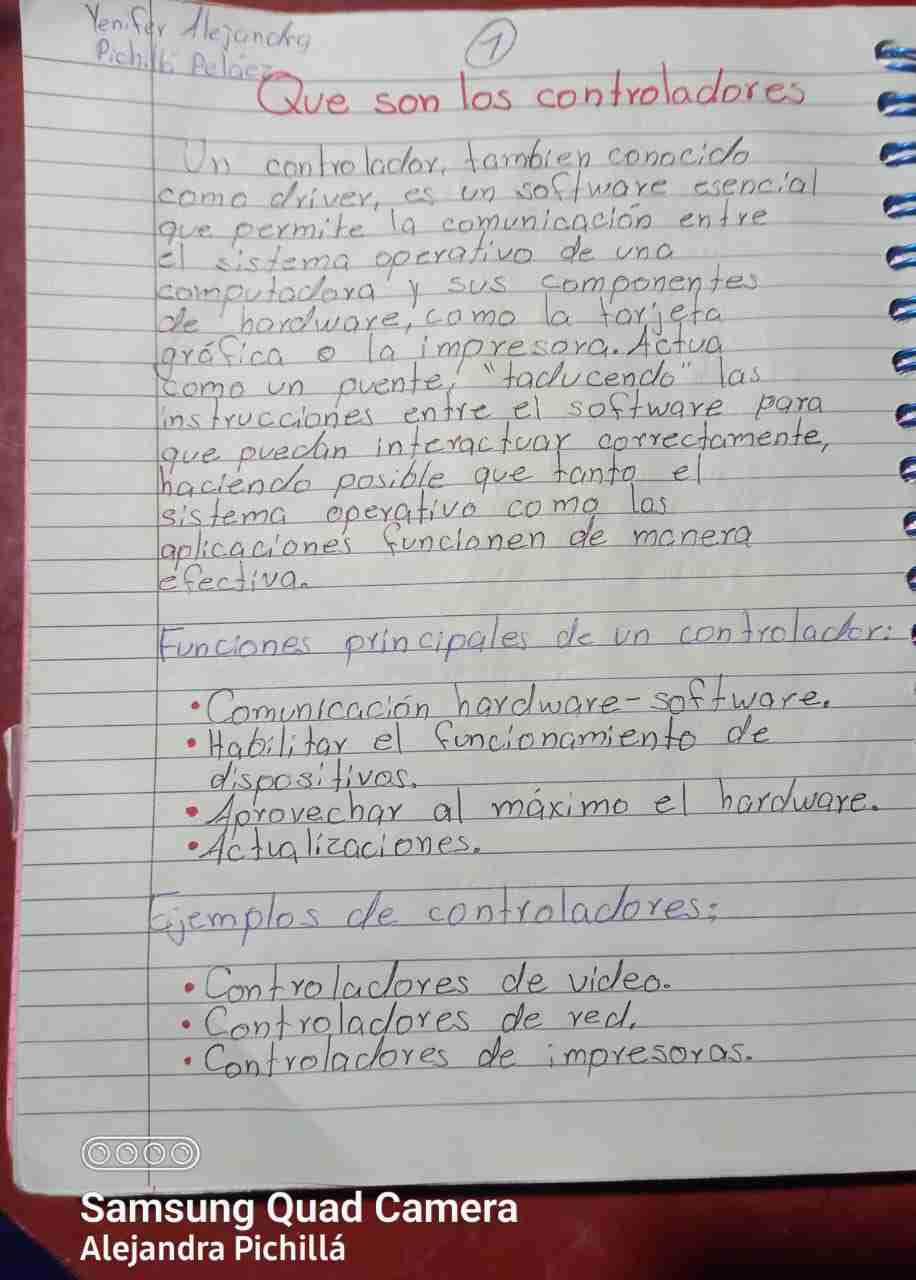 Yenifer Alejandra
Pichillá Peláez
1
Que son los controladores
Un controlador, tambien conocido
como driver, es un software esencial
que permite la comunicación entre
el sistema operativo de una
computadora y sus componentes
de hardware, como la tarjeta
gráfica o la impresora. Actua
como un puente, "taducendo" las
instrucciones entre el software para
que puedan interactuar correctamente,
haciendo posible que tanto el
sistema operativo como las
aplicaciones funcionen de manera
efectiva.
Funciones principales de un controlador:
• Comunicación hardware-software.
• Habilitar el funcionamiento de
dispositivos.
• Aprovechar al máximo el hardware.
• Actualizaciones.
Ejemplos de controladores:
• Controladores de video.
• Controladores de red.
• Controladores de impresoras.
Samsung Quad Camera
Alejandra Pichillá